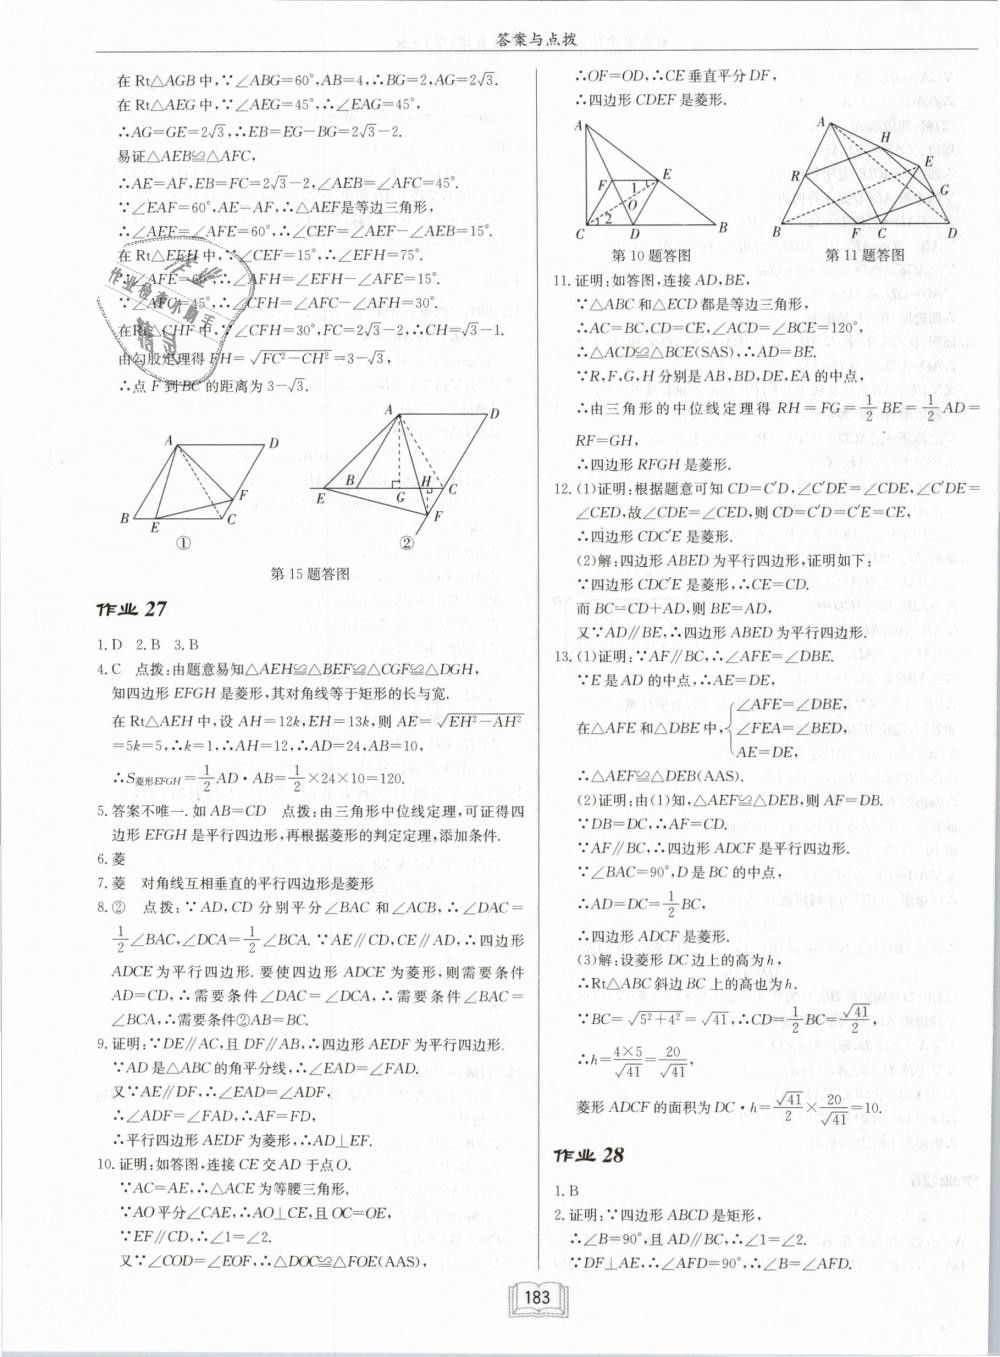 答案与点拨
在Rt△AGB中,∵∠ABG=60°,AB=4,∴BG=2,AG=2√3.
在Rt△AEG中,∵∠AEG=45°,∴∠EAG=45°,
∴AG=GE=2√3,∴EB=EG-BG=2√3-2.
易证△AEB≌△AFC,
∴AE=AF,EB=FC=2√3-2,∠AEB=∠AFC=45°.
∵∠EAF=60°,AE=AF,∴△AEF是等边三角形,
∴∠AEF=∠AFE=60°,∴∠CEF=∠AEF-∠AEB=15°.
在Rt△EFH中,∵∠CEF=15°,∴∠EFH=75°.
∵∠AFE=60°,∴∠AFH=∠EFH-∠AFE=15°.
∵∠AFC=45°,∴∠CFH=∠AFC-∠AFH=30°.
在Rt△CHF中,∵∠CFH=30°,FC=2√3-2,∴CH=√3-1.
由勾股定理得FH=√FC²-CH²=3-√3,
∴点F到BC的距离为3-√3.
A D B E C F
①
A D E B G H C F
②
第15题答图
作业27
1.D 2.B 3.B
4.C 点拨:由题意易知△AEH≌△BEF≌△CGF≌△DGH,
知四边形EFGH是菱形,其对角线等于矩形的长与宽.
在Rt△AEH中,设AH=12k,EH=13k,则AE=√EH²-AH²
=5k=5,∴k=1,∴AH=12,∴AD=24,AB=10,
∴S菱形EFGH=1/2 AD·AB=1/2×24×10=120.
5.答案不唯一.如AB=CD 点拨:由三角形中位线定理,可证得四
边形EFGH是平行四边形,再根据菱形的判定定理,添加条件.
6.菱
7.菱 对角线互相垂直的平行四边形是菱形
8.② 点拨:∵AD,CD分别平分∠BAC和∠ACB,∴∠DAC=
1/2∠BAC,∠DCA=1/2∠BCA.∵AE∥CD,CE∥AD,∴四边形
ADCE为平行四边形.要使四边形ADCE为菱形,则需要条件
AD=CD,∴需要条件∠DAC=∠DCA,∴需要条件∠BAC=
∠BCA,∴需要条件②AB=BC.
9.证明:∵DE∥AC,且DF∥AB,∴四边形AEDF为平行四边形.
∵AD是△ABC的角平分线,∴∠EAD=∠FAD.
又∵AE∥DF,∴∠EAD=∠ADF,
∴∠ADF=∠FAD,∴AF=FD,
∴平行四边形AEDF为菱形,∴AD⊥EF.
10.证明:如答图,连接CE交AD于点O.
∵AC=AE,∴△ACE为等腰三角形.
∵AO平分∠CAE,∴AO⊥CE,且OC=OE,
∵EF∥CD,∴∠1=∠2.
又∵∠COD=∠EOF,∴△DOC≌△FOE(AAS),
∴OF=OD,∴CE垂直平分DF,
∴四边形CDEF是菱形.
A F E 1 O 2 C D B
第10题答图
A H E R G B F C D
第11题答图
11.证明:如答图,连接AD,BE,
∵△ABC和△ECD都是等边三角形,
∴AC=BC,CD=CE,∠ACD=∠BCE=120°,
∴△ACD≌△BCE(SAS),∴AD=BE.
∵R,F,G,H分别是AB,BD,DE,EA的中点,
∴由三角形的中位线定理得RH=FG=1/2 BE=1/2 AD=
RF=GH,
∴四边形RFGH是菱形.
12.(1)证明:根据题意可知CD=C′D,∠C′DE=∠CDE,∠C′DE=
∠CED,故∠CDE=∠CED,则CD=C′D=C′E=CE,
∴四边形CDC′E是菱形.
(2)解:四边形ABED为平行四边形,证明如下:
∵四边形CDC′E是菱形,∴CE=CD.
而BC=CD+AD,则BE=AD,
又∵AD∥BE,∴四边形ABED为平行四边形.
13.(1)证明:∵AF∥BC,∴∠AFE=∠DBE.
∵E是AD的中点,∴AE=DE,
在△AFE和△DBE中,{∠AFE=∠DBE,
∠FEA=∠BED,
AE=DE,
∴△AEF≌△DEB(AAS).
(2)证明:由(1)知,△AEF≌△DEB,则AF=DB.
∵DB=DC,∴AF=CD.
∵AF∥BC,∴四边形ADCF是平行四边形.
∵∠BAC=90°,D是BC的中点,
∴AD=DC=1/2 BC,
∴四边形ADCF是菱形.
(3)解:设菱形DC边上的高为h,
∴Rt△ABC斜边BC上的高也为h.
∵BC=√5²+4²=√41,∴CD=1/2 BC=√41/2,
∴h=4×5/√41=20/√41,
菱形ADCF的面积为DC·h=√41/2×20/√41=10.
作业28
1.B
2.证明:∵四边形ABCD是矩形,
∴∠B=90°,且AD∥BC,∴∠1=∠2.
∵DF⊥AE,∴∠AFD=90°,∴∠B=∠AFD.
183